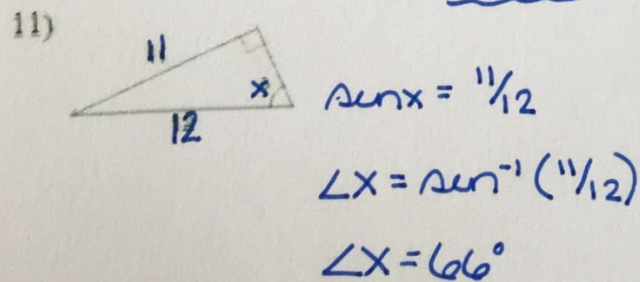 11)
11
x
12
sin x = 11/12
∠x = sin⁻¹ (11/12)
∠x = 66°